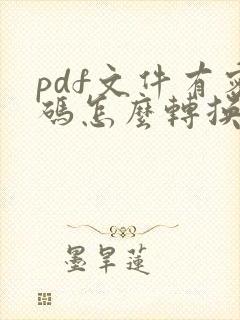 pdf文件有密
碼怎麼轉換
墨旱蓮